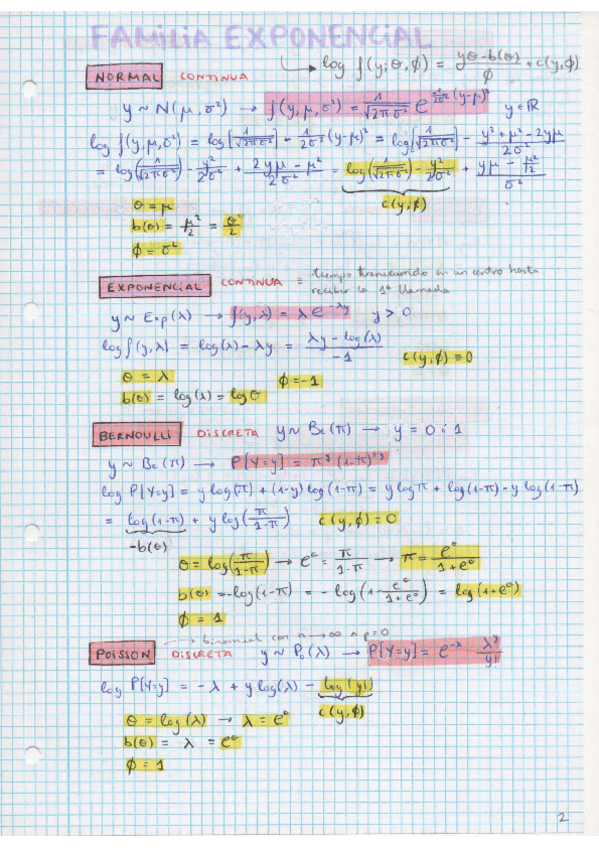 FAMILIA EXPONENCIAL
log f(y;θ,ϕ) = (yθ-b(θ))/ϕ + c(y,ϕ)
NORMAL CONTINUA
y ~ N(μ,σ²) → f(y,μ,σ²) = 1/√(2πσ²) e^(-1/(2σ²) (y-μ)²) y∈ℝ
log f(y,μ,σ²) = log[1/√(2πσ²)] - 1/(2σ²) (y-μ)² = log[1/√(2πσ²)] - (y²+μ²-2yμ)/(2σ²)
= log(1/√(2πσ²)) - y²/(2σ²) + (2yμ-μ²)/(2σ²) = log(1/√(2πσ²)) - y²/(2σ²) + (yμ - μ²/2)/σ²
c(y,ϕ)
θ = μ
b(θ) = μ²/2 = θ²/2
ϕ = σ²
EXPONENCIAL CONTINUA = tiempo transcurrido en un centro hasta
recibir la 1ª llamada
y ~ Exp(λ) → f(y,λ) = λe^(-λy) y > 0
log f(y,λ) = log(λ) - λy = (λy - log(λ))/-1 c(y,ϕ) = 0
θ = λ ϕ = -1
b(θ) = log(λ) = log θ
BERNOULLI DISCRETA y ~ Be(π) → y = 0 ó 1
y ~ Be(π) → P[Y=y] = π^y (1-π)^1-y
log P[Y=y] = y log(π) + (1-y) log(1-π) = y log π + log(1-π) - y log(1-π)
= log(1-π) + y log(π/(1-π)) c(y,ϕ) = 0
-b(θ)
θ = log(π/(1-π)) → e^θ = π/(1-π) → π = e^θ/(1+e^θ)
b(θ) = -log(1-π) = -log(1 - e^θ/(1+e^θ)) = log(1+e^θ)
ϕ = 1
→ binomial con n→∞ ∧ p=0
POISSON DISCRETA y ~ Po(λ) → P[Y=y] = e^(-λ) λ^y/y!
log P[Y=y] = -λ + y log(λ) - log(y!)
θ = log(λ) → λ = e^θ c(y,ϕ)
b(θ) = λ = e^θ
ϕ = 1
2